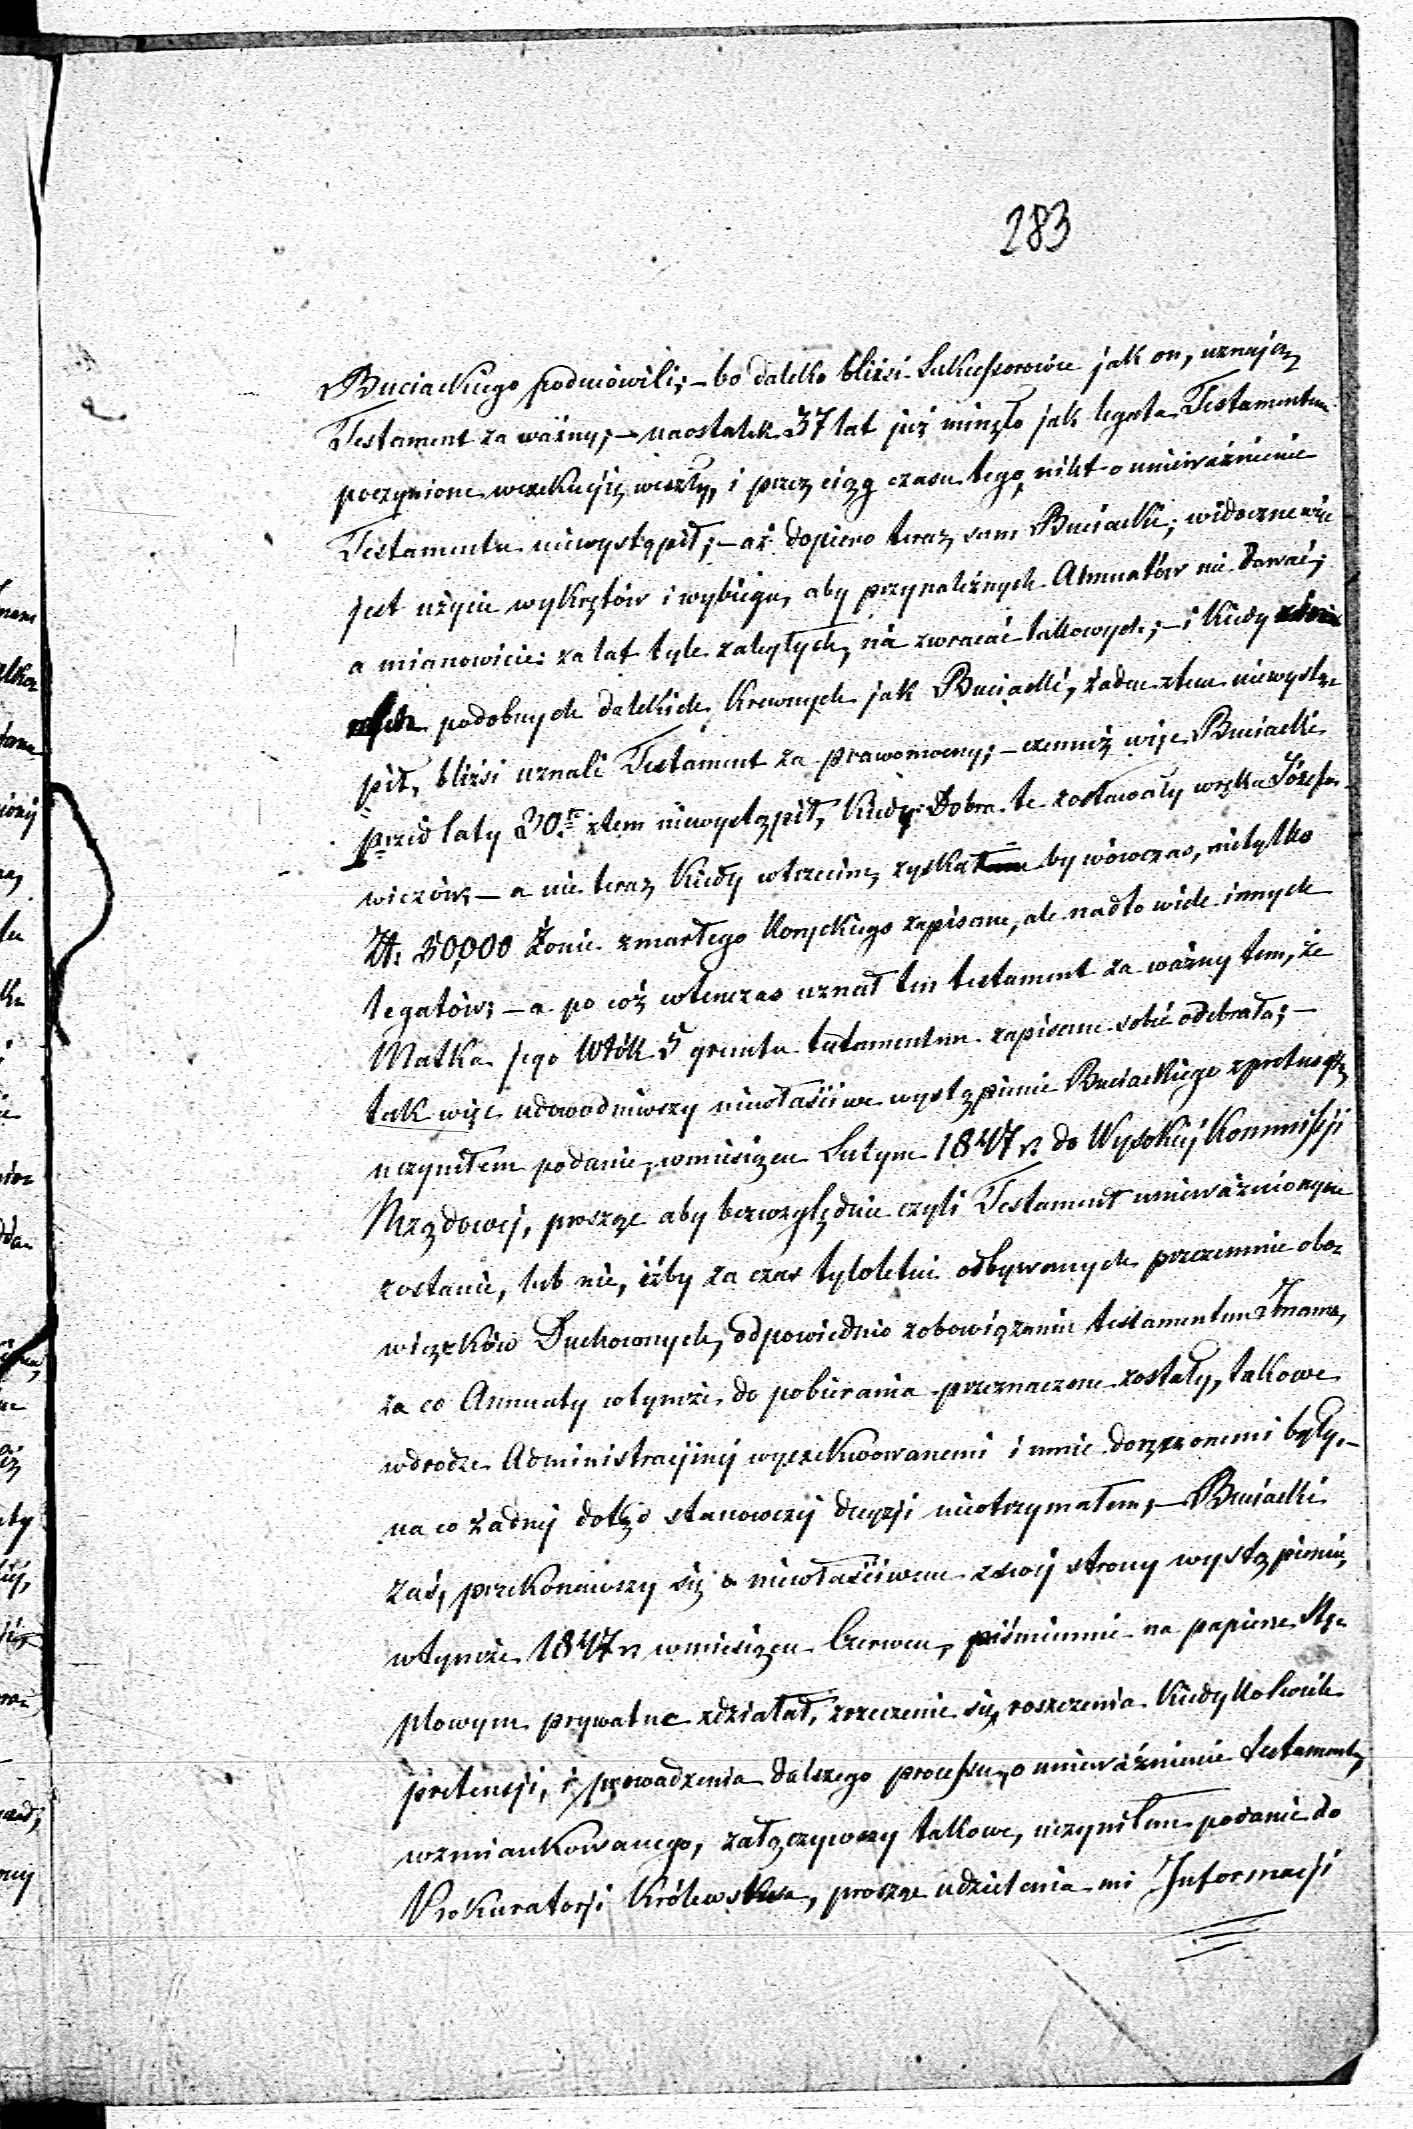 283
Buciackiego podmówili; – bo daleko bliżsi Sukcessorowie jak on, uznają
Testament za ważny; – naostatek 37 lat już minęło jak legata Testamentem
poczynione wexekucyią weszły, i przez ciąg czasu tego, nikt o unieważnienie
Testamentu niewystąpił; – aż dopiero teraz sam Buciacki; widoczne więc
jest użycie wykrętów i wybiegu, aby przynależnych Annuatów nie dawać;
a mianowicie: za lat tyle zaległych, nie zwracać takowych; – i kiedy
podobnych dalekich Krewnych jak Buciacki, żaden ztem niewystą-
pił, bliżsi uznali Testament za prawomocny; – czemuż więc Buciacki
przed laty 20.stu ztem niewystąpił, kiedy Dobra te zostawały wręku Józefo-
wiczów; – a nie teraz kiedy wtrzecim, zyskał by wówczas, nietylko
Zł: 50,000 Żonie zmarłego Koryckiego zapisane, ale nadto wiele innych
legatów; – a po cóż wtenczas uznał ten testament za ważny tem, że
Matka jego Włók 5 gruntu testamentem zapisane sobie odebrała; –
tak więc udowodniwszy niewłaściwe wystąpienie Buciackiego zpretensyą
uczyniłem podanie, wmiesiącu Lutym 1847 r. do Wysokiej Kommissyi
Rządowej, prosząc aby bezwzględnie czyli Testament unieważnionym
zostanie, lub nie, iżby za czas tyloletni odbywanych przezemnie obo-
wiązków Duchownych, odpowiednio zobowiązaniu testamentem
za co Annuaty wtymże do pobierania przeznaczone zostały, takowe
wdrodze Administracyjnej wyexekwowanemi i mnie doręczonemi były, –
na co żadnej dotąd stanowczej decyzji nieotrzymałem; – Buciacki
zaś, przekonawszy się o niewłaściwem zswej strony wystąpieniu,
wtymże 1847 r. wmiesiącu Czerwcu, piśmiennie na papierze Stę-
plowym prywatne zdziałał, zrzeczenie się, roszczenia kiedykolwiek
pretensyi, i prowadzenia dalszego processu, o unieważnienie testamentu,
wzmiankowanego, załączywszy takowe, uczyniłem podanie do
Prokuratorji Królewstwa, prosząc udzielenia mi Informacji